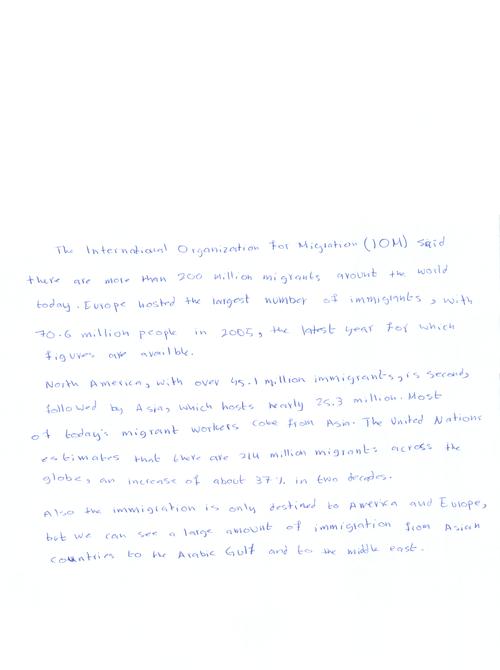 The International Organization for Migration (IOM) said
there are more than 200 million migrants around the world
today. Europe hosted the largest number of immigrants, with
70.6 million people in 2005, the latest year for which
figures are availble.
North America, with over 45.1 million immigrants, is second,
followed by Asia, which hosts nearly 25.3 million. Most
of today's migrant workers come from Asia. The United Nations
estimates that there are 214 million migrants across the
globe, an increase of about 37% in two decades.
Also the immigration is only destined to America and Europe,
but we can see a large amount of immigration from Asian
countries to the Arabic Gulf and to the middle east.